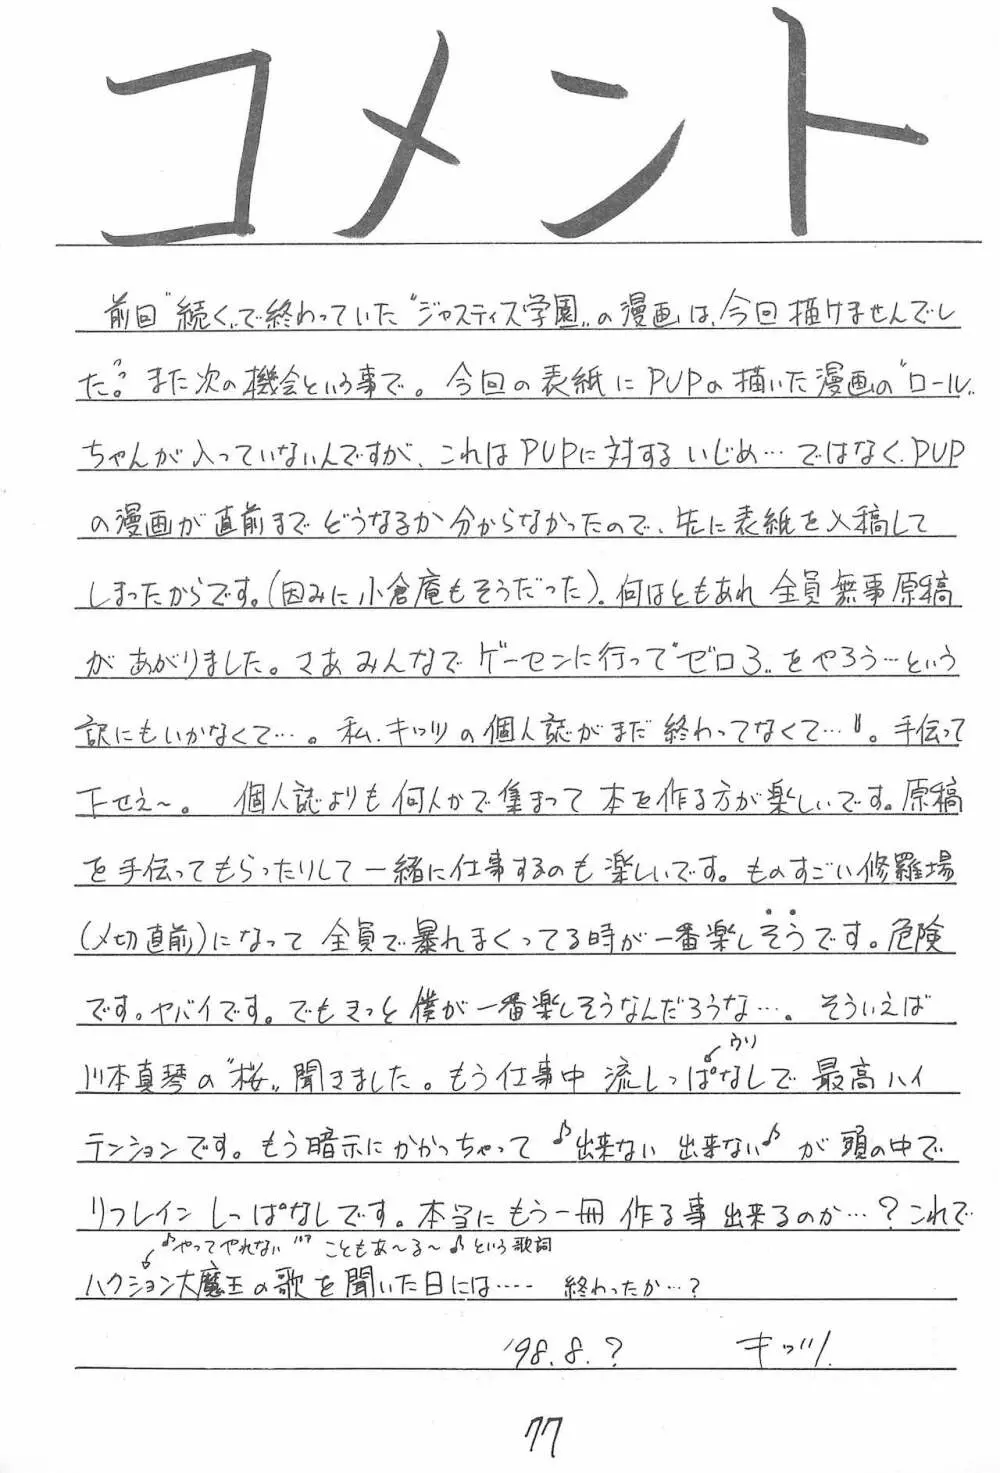 コメント
前回〝続く〟で終わっていた〝ジャスティス学園〟の漫画は、今回描けませんでし
たっっ。また次の機会という事で。今回の表紙にPUPの描いた漫画の〝ロール〟
ちゃんが入っていないんですが、これはPUPに対するいじめ…ではなく、PUP
の漫画が直前までどうなるか分からなかったので、先に表紙を入稿して
しまったからです。(因みに小倉庵もそうだった)。何はともあれ全員無事原稿
があがりました。さあみんなでゲーセンに行って〝ゼロ3〟をやろう…という
訳にもいかなくて…。私、キッツの個人誌がまだ終わってなくて…。手伝って
下せえ~。 個人誌よりも何人かで集まって本を作る方が楽しいです。原稿
を手伝ってもらったりして一緒に仕事するのも楽しいです。ものすごい修羅場
(〆切直前)になって全員で暴れまくってる時が一番楽しそうです。危険
です。ヤバイです。でもきっと僕が一番楽しそうなんだろうな…。そういえば
ウソ
川本真琴の〝桜〟聞きました。もう仕事中流しっぱなしで最高ハイ
テンションです。もう暗示にかかっちゃって♪出来ない出来ない♪が頭の中で
リフレインしっぱなしです。本当にもう一冊作る事出来るのか…?これで
♪やってやれない こともあ~る~♪という歌詞
ハクション大魔王の歌を聞いた日には…… 終わったか…?
'98.8.? キッツ
77